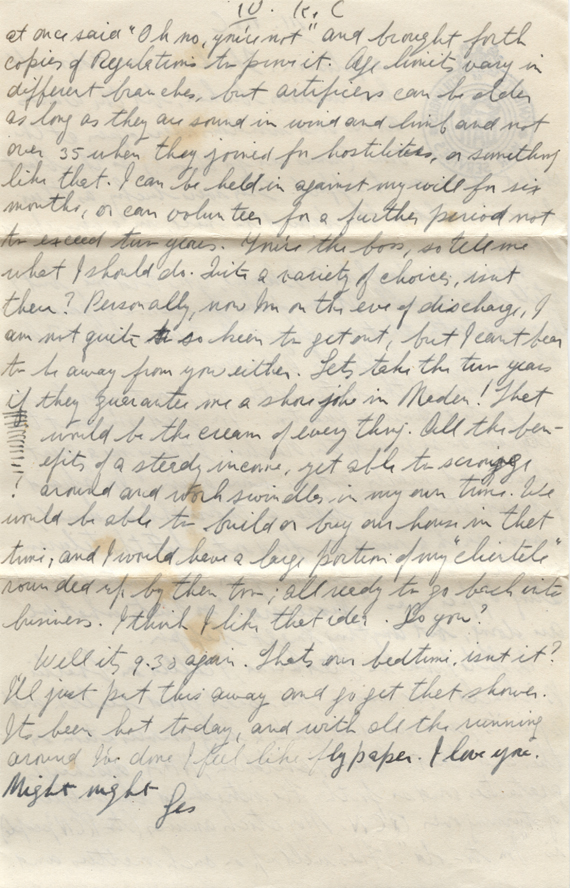 IV. K.C
at once said "Oh no, you're not" and brought forth
copies of Regulations to prove it. Age limits vary in
different branches, but artificers can be older
as long as they are sound in wind and limb and not
over 35 when they joined for hostilities, or something
like that. I can be held in against my will for six
months, or can volunteer for a further period not
to exceed two years. You're the boss, so tell me
what I should do. Quite a variety of choices, isnt
there? Personally, now Im on the eve of discharge, I
am not quite so keen to get out, but I cant bear
to be away from you either. Lets take the two years
if they guarantee me a shore job in Meden! That
would be the cream of everything. All the ben-
efits of a steady income, yet able to scrounge
? around and work swindles in my own time. We
would be able to build or buy our house in that
time, and I would have a large portion of my "clientele"
rounded up by then too; all ready to go back into
business. I think I like that idea. Do you?
Well its 9.30 again. Thats our bedtime, isnt it?
I'll just put this away and go get that shower.
Its been hot today, and with all the running
around Ive done I feel like flypaper. I love you.
Night night
Les